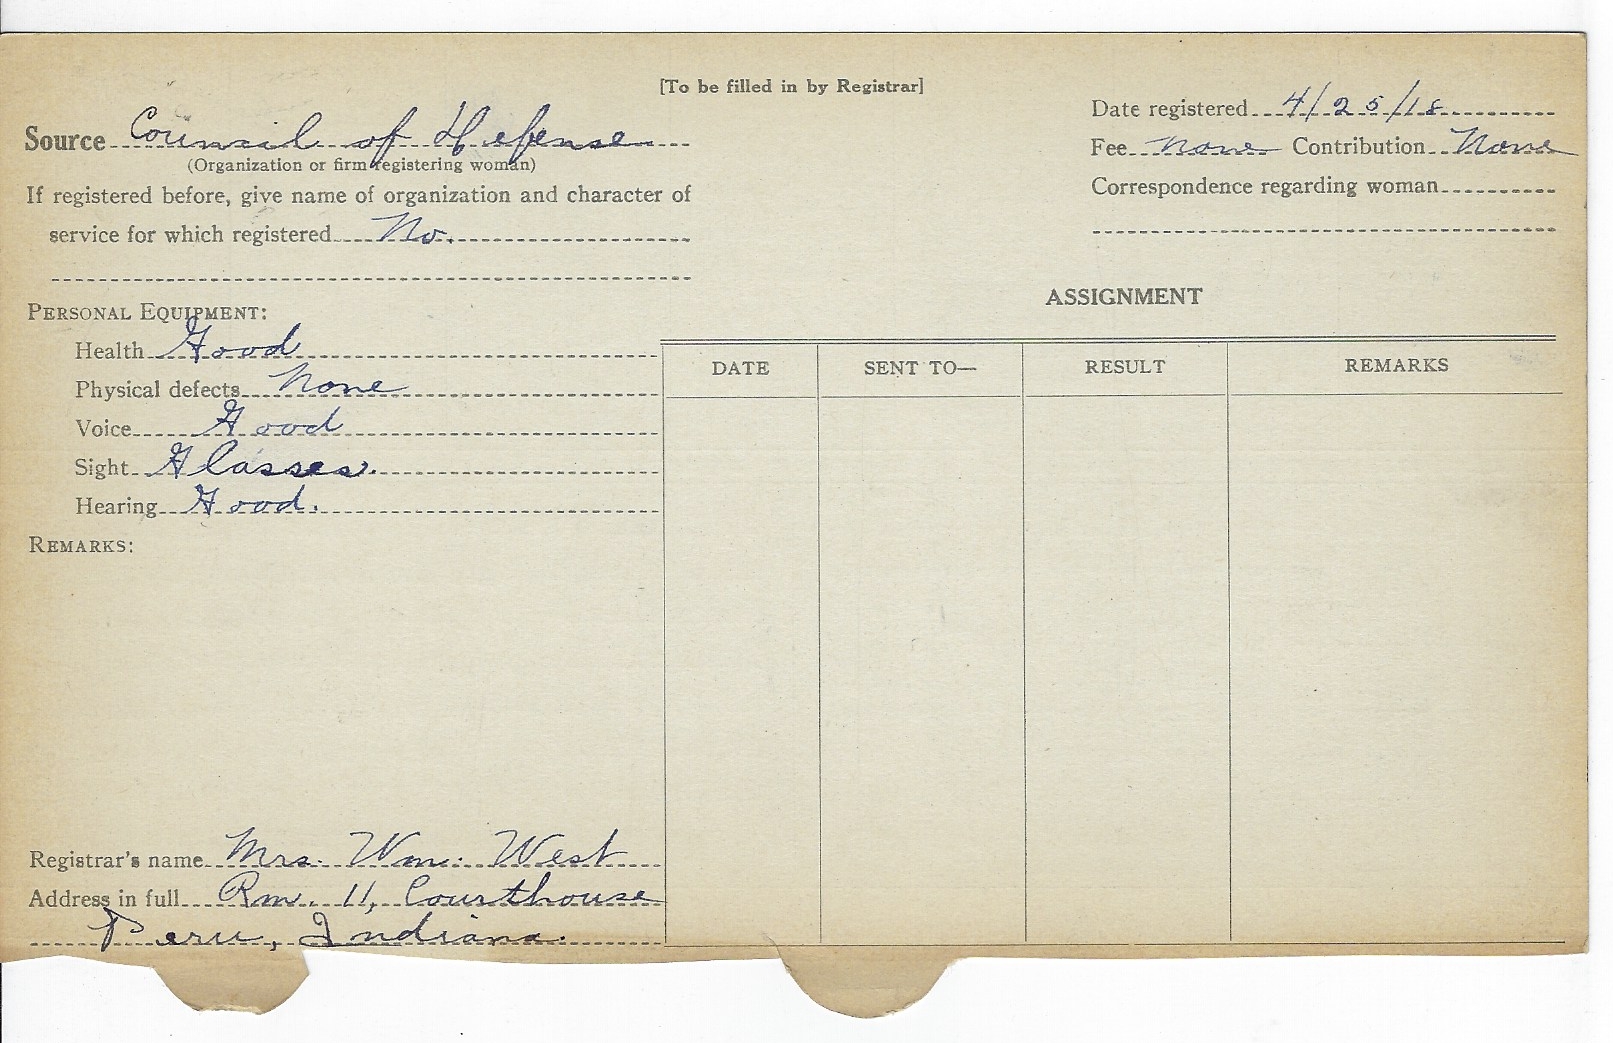 [To be filled in by Registrar]
Source Council of Defense
(Organization or firm registering woman)
If registered before, give name of organization and character of
service for which registered No.
Date registered 4/25/18
Fee none Contribution None
Correspondence regarding woman
PERSONAL EQUIPMENT:
Health Good
Physical defects None
Voice Good
Sight Glasses.
Hearing Good.
REMARKS:
Registrar's name Mrs. Wm. West
Address in full Rm. 11, Courthouse
Peru, Indiana.
ASSIGNMENT
DATE SENT TO— RESULT REMARKS